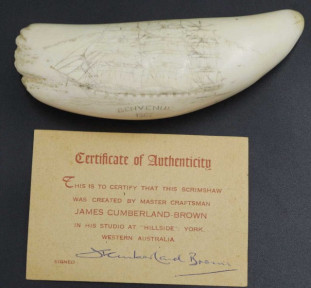 Certificate of Authenticity
THIS IS TO CERTIFY THAT THIS SCRIMSHAW
WAS CREATED BY MASTER CRAFTSMAN
JAMES CUMBERLAND-BROWN
IN HIS STUDIO AT "HILLSIDE" YORK,
WESTERN AUSTRALIA
SIGNED
J Cumberland Brown